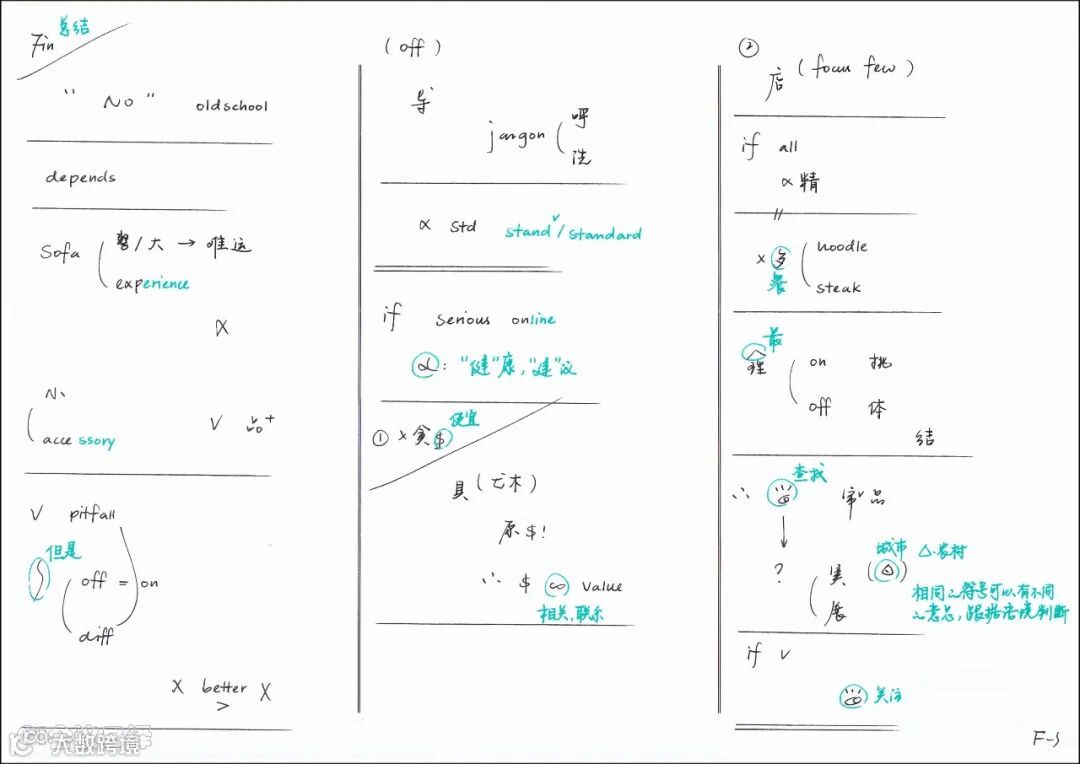 Fin 总结
" No " oldschool
depends
Sofa 大 → 唯远
experience
accessory
V 品+
V pitfall
但是
off = on
diff
X better X
>
(off)
导
jargon ( 呼
洗
∝ std stand✓/standard
if serious online
∝: "健"康, "建"议
① × 贪$ 便宜
具 (亡木)
原 $!
∴ $ ∞ value
相关, 联系
②
店 (focus few)
if all
∝ 精
× 多 noodle
餐 steak
最
程 on 挑
off 体
结
∴ 查找 审V品
? 实 城市 △:农村
展
相同的符号可以有不同
的意思, 跟据语境判断
if V
关注
F-S
大数跨境